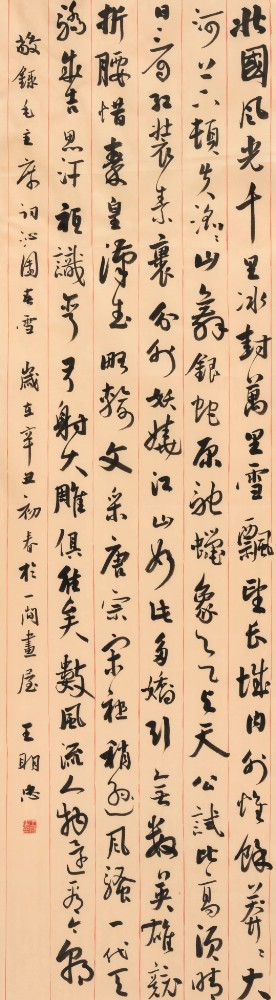 北國風光千里冰封萬里雪飄望長城內外惟餘莽莽大
河上下頓失滔滔山舞銀蛇原馳蠟象欲与天公試比高須晴
日看紅裝素裹分外妖嬈江山如此多嬌引無數英雄競
折腰惜秦皇漢武略輸文采唐宗宋祖稍遜風騷一代天
驕成吉思汗祗識彎弓射大雕俱往矣數風流人物還看今朝
敬錄毛主席詞沁園春雪 歲在辛丑初春於一間畫屋 王明忠